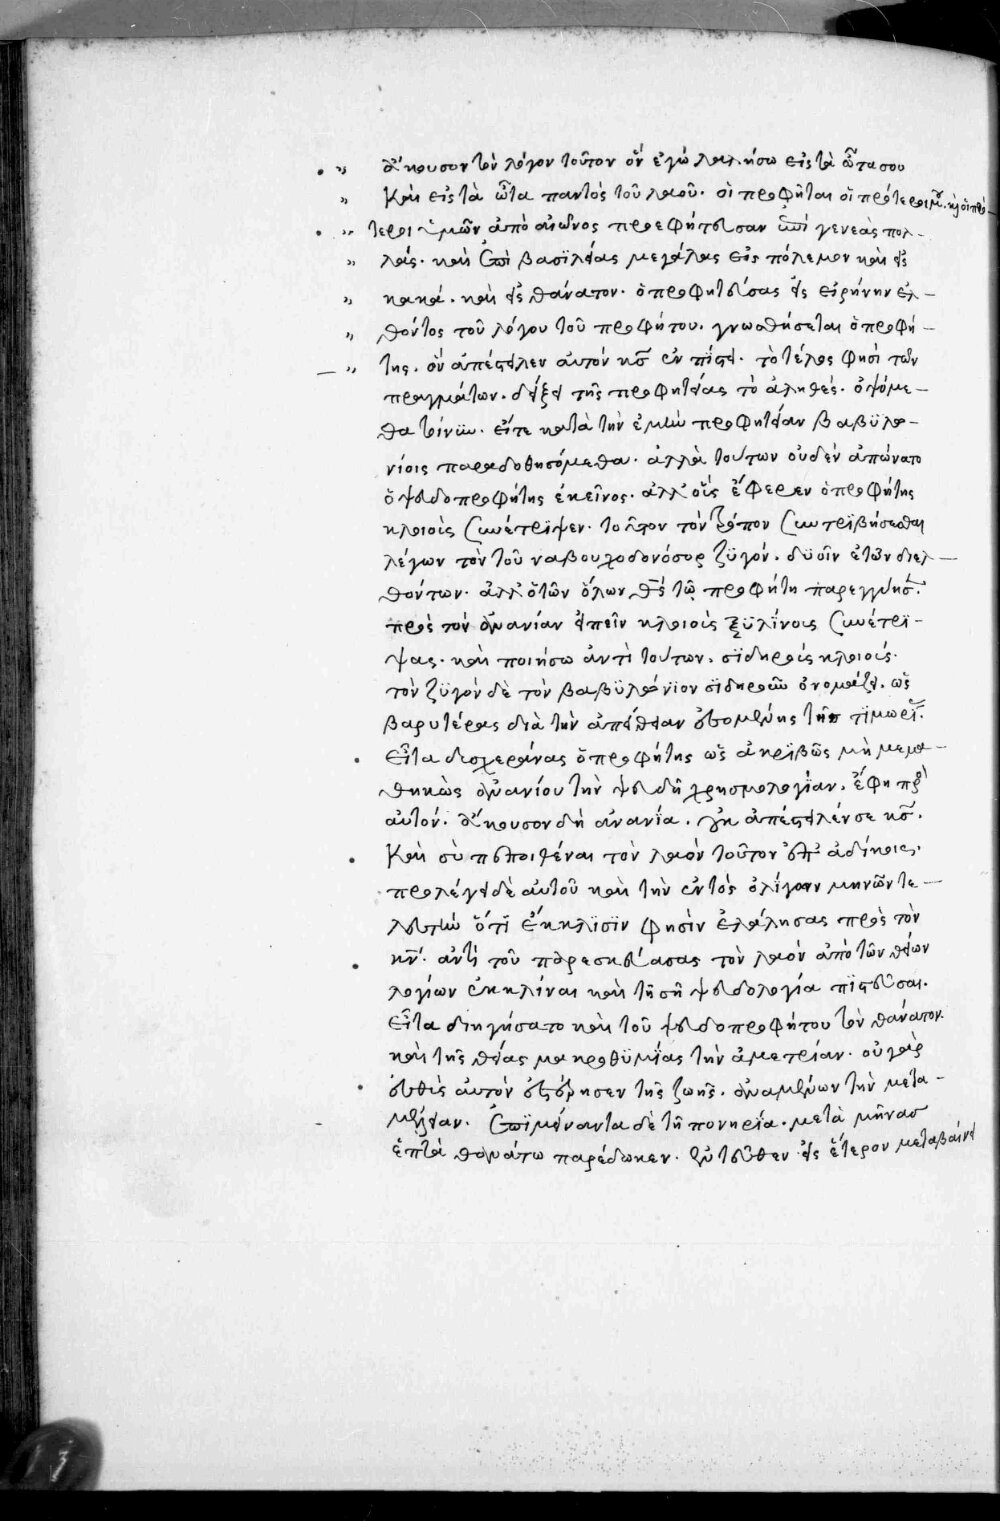 ἄκουσον τὸν λόγον τοῦτον ὃν ἐγὼ λαλήσω εἰς τὰ ὦτα σου
καὶ εἰς τὰ ὦτα παντὸς τοῦ λαοῦ· οἱ προφῆται οἱ πρότεροί μου· καὶ οἱ πρό
τεροι ὑμῶν ἀπὸ αἰῶνος προεφήτευσαν ἐπὶ γενεὰς πολ-
λάς· καὶ ἐπὶ βασιλείας μεγάλας εἰς πόλεμον καὶ εἰς
κακά· καὶ εἰς θάνατον· ὁ προφητεύσας εἰς εἰρήνην ἐλ-
θόντος τοῦ λόγου τοῦ προφήτου· γνωσθήσεται ὁ προφή-
της· ὃν ἀπέστειλεν αὐτὸν κς ἐν πίστει· τὸ τέλος φησὶ τῶν
πραγμάτων· δείξει τῆς προφητείας τὸ ἀληθές· ὀψόμε-
θα τοίνυν· εἴτε κατὰ τὴν ἐμὴν προφητείαν βαβϋλω-
νίοις παραδοθησόμεθα· ἀλλὰ τούτων οὐδὲν ἀπώνατο
ὁ ψευδοπροφήτης ἐκεῖνος· ἀλλ' οἷς ἔφερεν ὁ προφήτης
κλοιοῖς συνέτριψεν· τοῦτον τὸν τρόπον συντριβήσεσθαι
λέγων τὸν τοῦ ναβουχοδονόσορ ζϋγόν· δϋοῖν ἐτῶν διελ-
θόντων· ἀλλ' ὁ τῶν ὅλων θς τῷ προφήτη παρεγγύησε
πρὸς τὸν ἀνανίαν εἰπεῖν κλοιοὺς ξϋλίνους συνέτρι-
ψας· καὶ ποιήσω ἀντὶ τούτων· σϊδηροῦς κλοιούς·
τὸν ζϋγὸν δὲ τὸν βαβϋλώνιον σϊδηροῦν ὀνομάζει· ὡς
βαρυτέρας διὰ τὴν ἀπείθειαν ἐσομένης τῆς τϊμωρίας
εἶτα δυσχεράνας ὁ προφήτης ὡς ἀκρϊβῶς μὴ μεμα-
θηκὼς ἀνανίου τὴν ψευδῆ χρησμολογίαν· ἔφη πρὸς
αὐτόν· ἄκουσον δὴ ἀνανία· οὐκ ἀπέσταλκέν σε κς·
καὶ σὺ πεποιθέναι τὸν λαὸν τοῦτον ἐπ' ἀδίκοις·
προλέγει δὲ αὐτοῦ καὶ τὴν ἐντὸς ὀλίγων μηνῶν τε-
λευτὴν ὅτι ἔκκλϊσϊν φησὶν ἐλάλησας πρὸς τὸν
κν· ἀντὶ τοῦ παρεσκεύασας τὸν λαὸν ἀπὸ τῶν θείων
λογίων ἐκκλίναι καὶ τῇ σῇ ψευδολογία πϊστεῦσαι·
εἶτα διηγήσατο καὶ τοῦ ψευδοπροφήτου τὸν θάνατον·
καὶ τῆς θείας μακροθϋμίας τὴν ἀμετρίαν· οὐ γὰρ
εὐθὺς αὐτὸν ἐστέρησεν τῆς ζωῆς· ἀναμένων τὴν μετα-
μέλειαν· ἐπϊμείναντα δὲ τῇ πονηρία· μετὰ μῆνας
ἑπτὰ θανάτω παρέδωκεν· ἐντεῦθεν εἰς ἕτερον μεταβαίνει